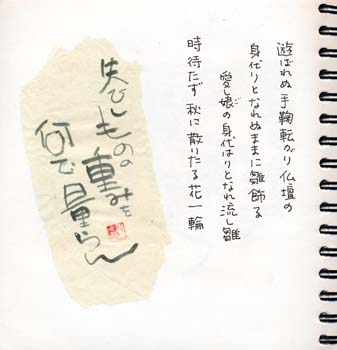 遊ばれぬ手鞠転がり仏壇の
身代りとなれぬままに雛飾る
愛し娘の身代はりとなれ流し雛
時待たず秋に散りたる花一輪
失ひしものの重みを
何で量らん